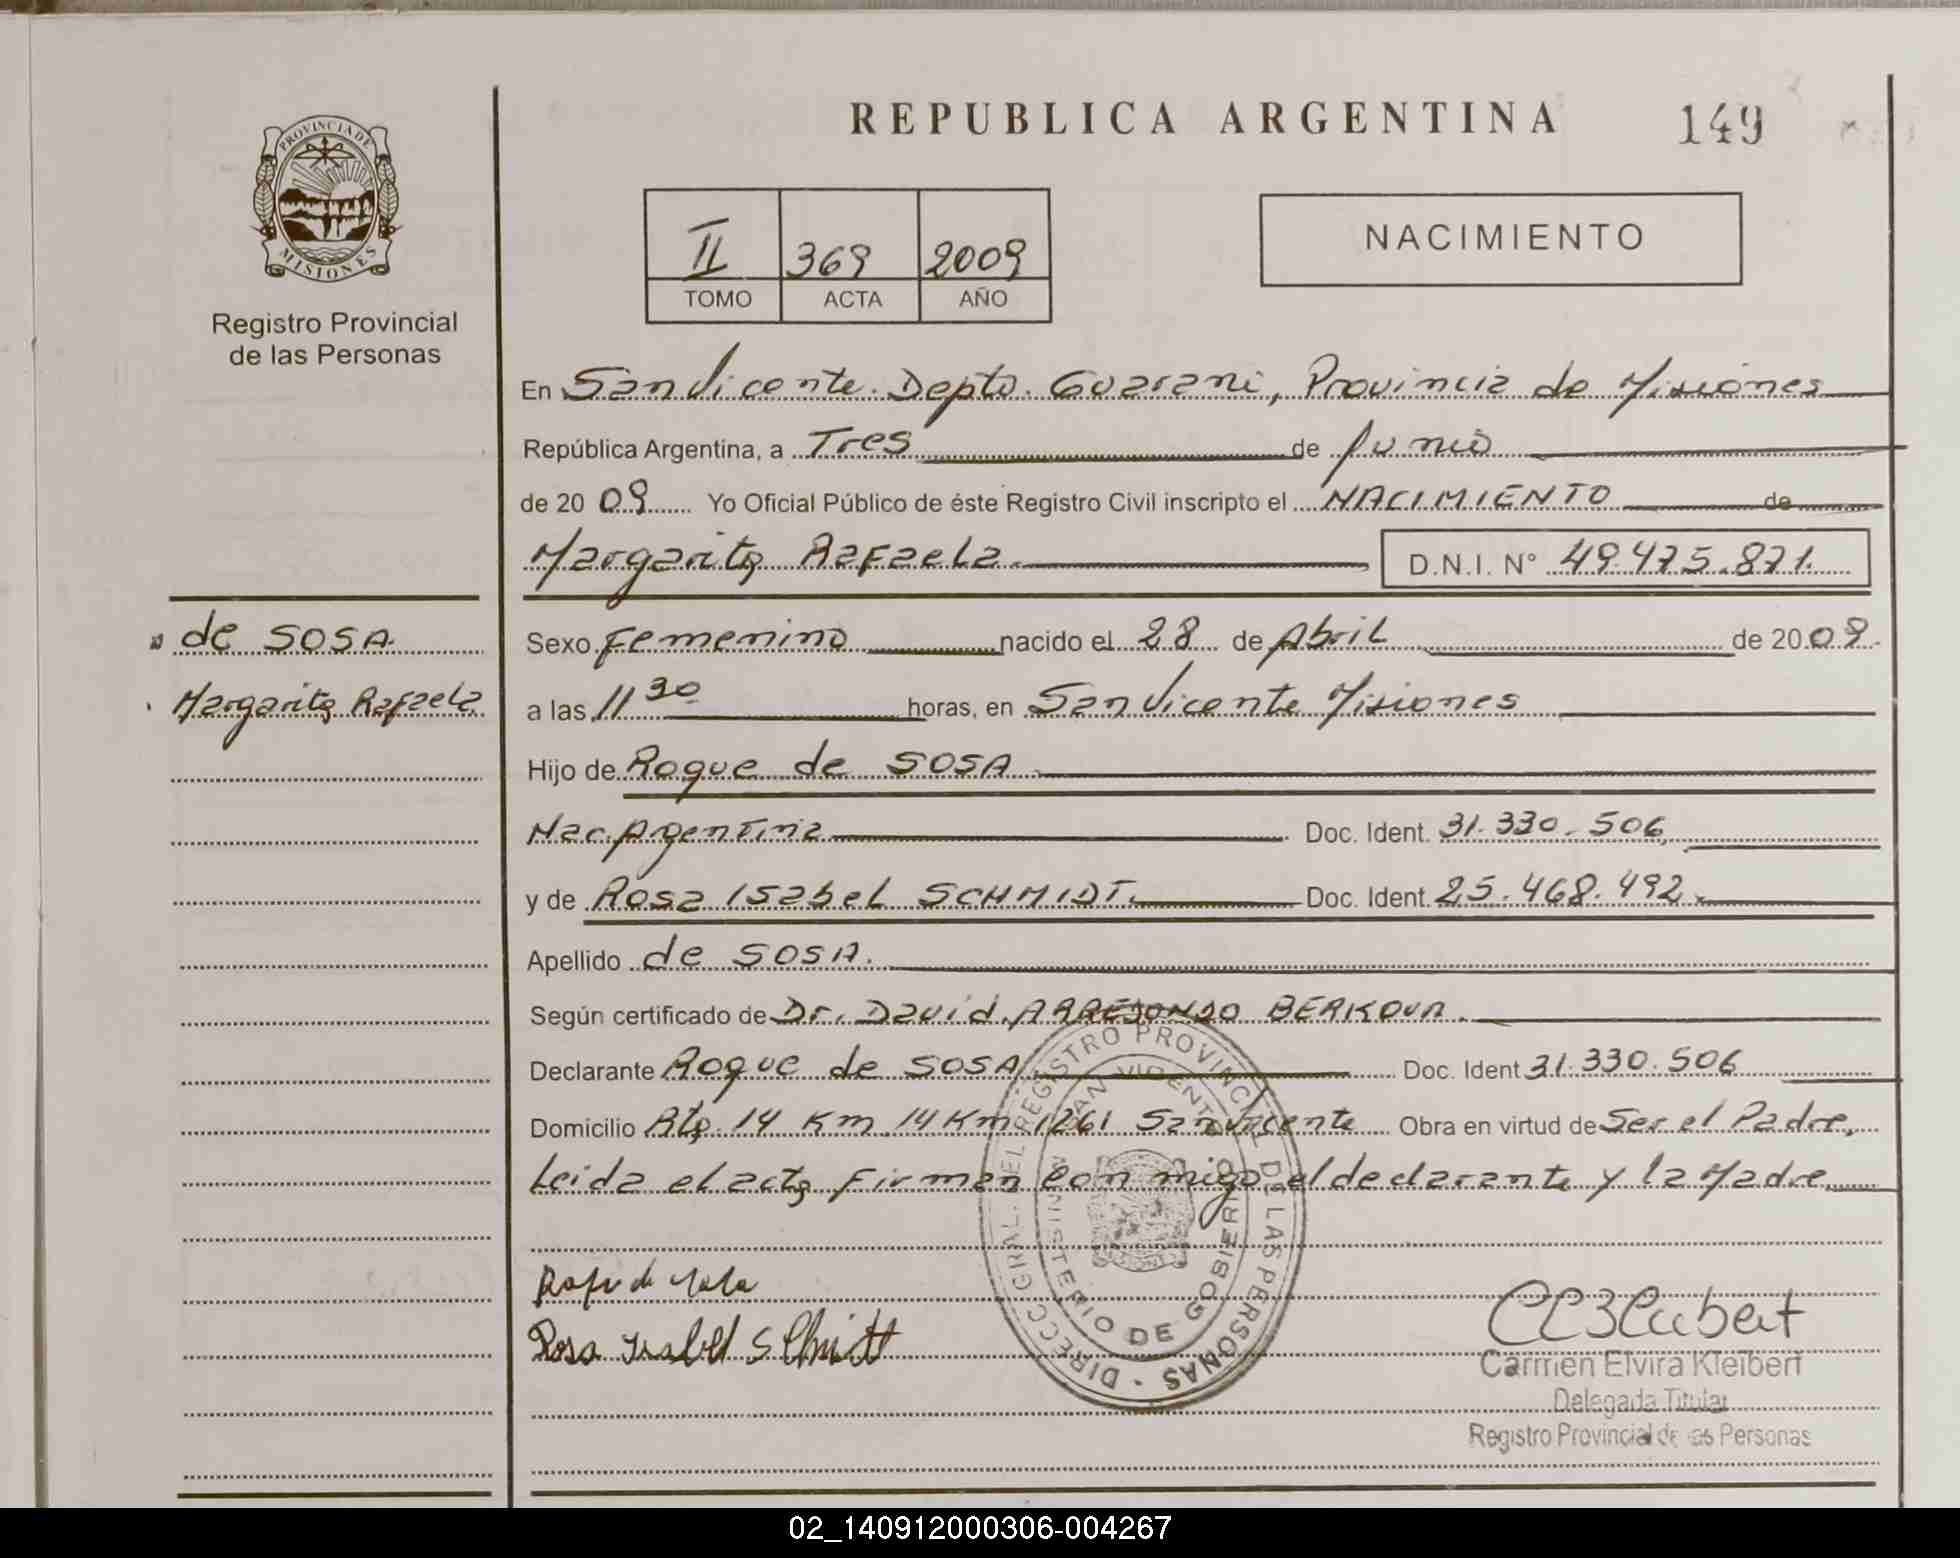 REPUBLICA ARGENTINA
149
PROVINCIA DE
MISIONES
Registro Provincial
de las Personas
II 369 2009
TOMO ACTA AÑO
NACIMIENTO
En San Vicente. Depto. Guarani, Provincia de Misiones
República Argentina, a Tres de Junio
de 2009 Yo Oficial Público de éste Registro Civil inscripto el NACIMIENTO de
Margarita Rafaela. D.N.I. N° 49.475.871.
de SOSA
Margarita Rafaela
Sexo Femenino nacido el 28 de Abril de 2009.
a las 11 30 horas, en San Vicente Misiones
Hijo de Roque de SOSA
Nac. Argentina Doc. Ident. 31.330.506
y de Rosa Isabel SCHMIDT. Doc. Ident. 25.468.492.
Apellido de SOSA.
Según certificado de Dr. David ARREJONDO BERKOVA.
Declarante Roque de SOSA Doc. Ident 31.330.506
Domicilio Rta. 14 Km 14 Km 1261 San Vicente Obra en virtud de Ser el Padre,
Leida el acta firman con migo el declarante y la Madre
DIRECC GRAL. DEL REGISTRO PROVINC. DE LAS PERSONAS -
SAN VICENTE
MINISTERIO DE GOBIERNO
Rosa Isabel Schmitt
Carmen Elvira Kleibert
Delegada Titular
Registro Provincial de las Personas
02_140912000306-004267